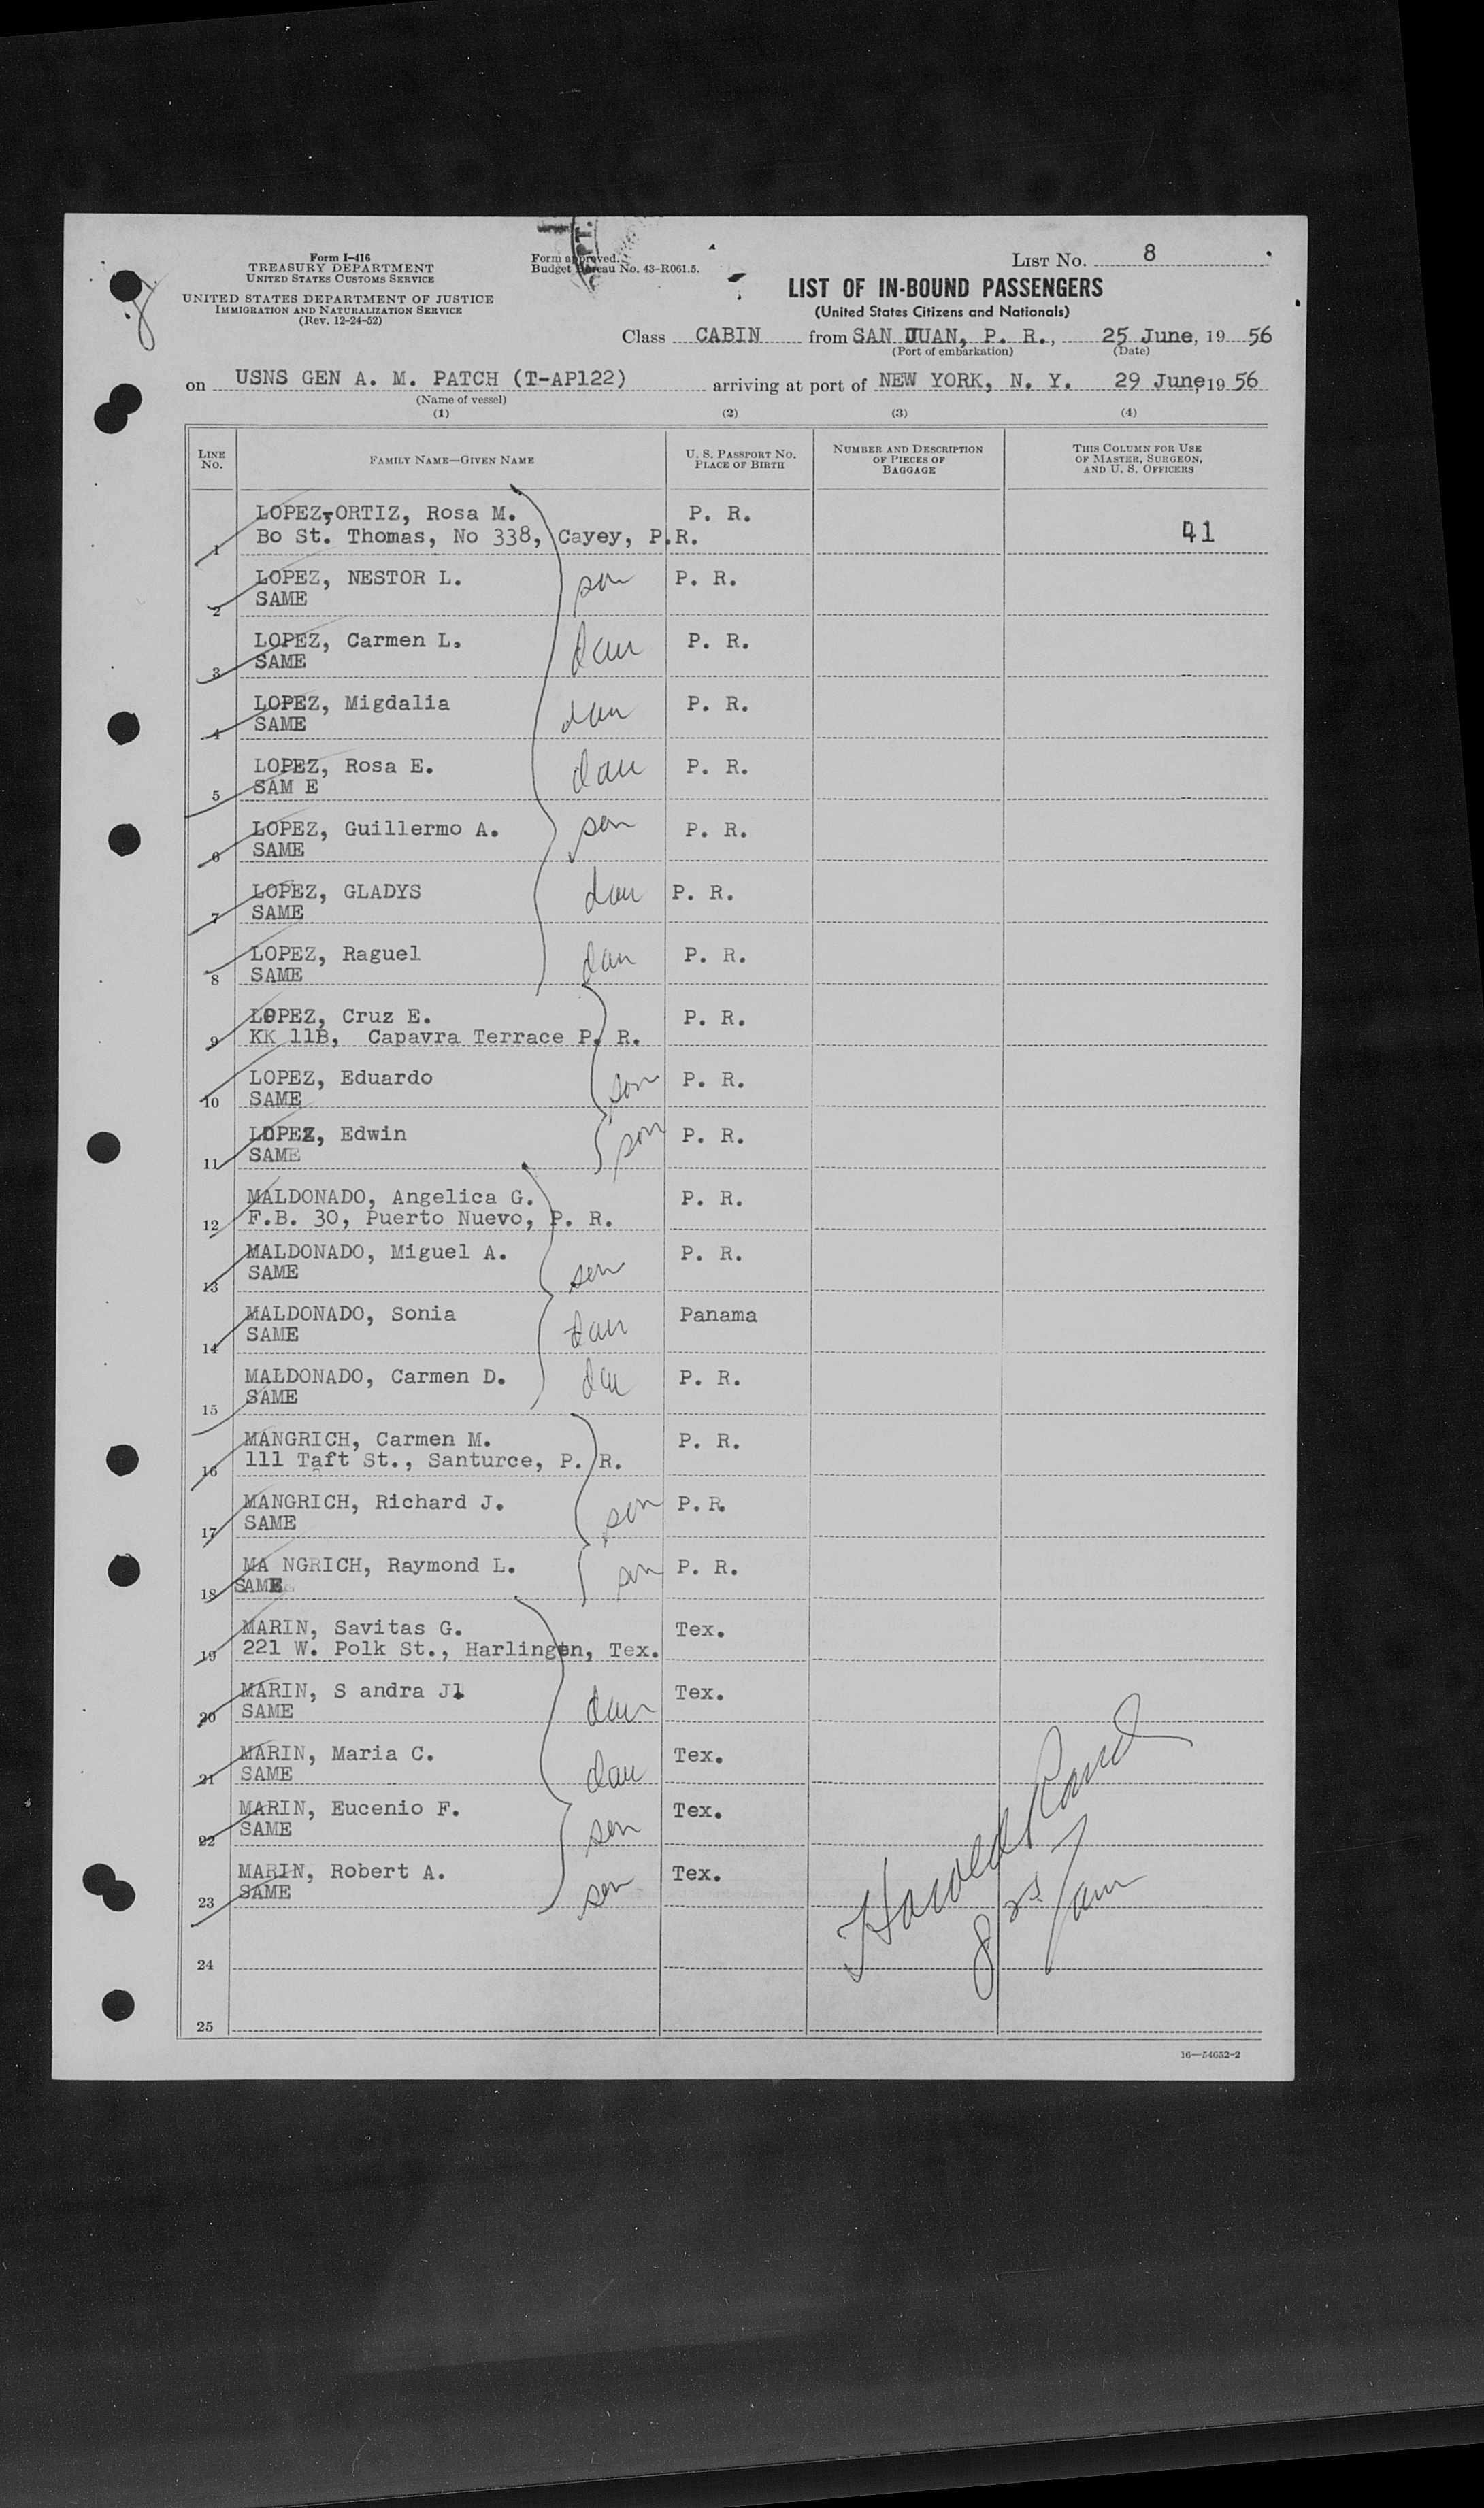 Form I-416
TREASURY DEPARTMENT
UNITED STATES CUSTOMS SERVICE
UNITED STATES DEPARTMENT OF JUSTICE
IMMIGRATION AND NATURALIZATION SERVICE
(Rev. 12-24-52)
Form approved.
Budget Bureau No. 43-R061.5.
PT.
8
LIST No. 8
LIST OF IN-BOUND PASSENGERS
(United States Citizens and Nationals)
Class CABIN from SAN JUAN, P. R., 25 June, 19 56
(Port of embarkation) (Date)
on USNS GEN A. M. PATCH (T-AP122) arriving at port of NEW YORK, N. Y. 29 June, 19 56
(Name of vessel)
(1) (2) (3) (4)
LINE No. FAMILY NAME—GIVEN NAME U. S. PASSPORT NO. PLACE OF BIRTH NUMBER AND DESCRIPTION OF PIECES OF BAGGAGE THIS COLUMN FOR USE OF MASTER, SURGEON, AND U. S. OFFICERS
LOPEZ-ORTIZ, Rosa M. P. R.
1 Bo St. Thomas, No 338, Cayey, P.R. 41
LOPEZ, NESTOR L. son P. R.
2 SAME
LOPEZ, Carmen L. dau P. R.
3 SAME
LOPEZ, Migdalia dau P. R.
4 SAME
LOPEZ, Rosa E. dau P. R.
5 SAM E
LOPEZ, Guillermo A. son P. R.
6 SAME
LOPEZ, GLADYS dau P. R.
7 SAME
LOPEZ, Raguel dau P. R.
8 SAME
LOPEZ, Cruz E. P. R.
9 KK 11B, Capavra Terrace P. R.
LOPEZ, Eduardo son P. R.
10 SAME
LOPEZ, Edwin son P. R.
11 SAME
MALDONADO, Angelica G. P. R.
12 F.B. 30, Puerto Nuevo, P. R.
MALDONADO, Miguel A. son P. R.
13 SAME
MALDONADO, Sonia dau Panama
14 SAME
MALDONADO, Carmen D. dau P. R.
15 SAME
MANGRICH, Carmen M. P. R.
16 111 Taft St., Santurce, P. R.
MANGRICH, Richard J. son P. R.
17 SAME
MA NGRICH, Raymond L. son P. R.
18 SAME
MARIN, Savitas G. Tex.
19 221 W. Polk St., Harlingen, Tex.
MARIN, S andra Jl dau Tex.
20 SAME
MARIN, Maria C. dau Tex.
21 SAME
MARIN, Eucenio F. son Tex.
22 SAME
MARIN, Robert A. son Tex.
23 SAME
Harold Rand
24
25
16—54652-2